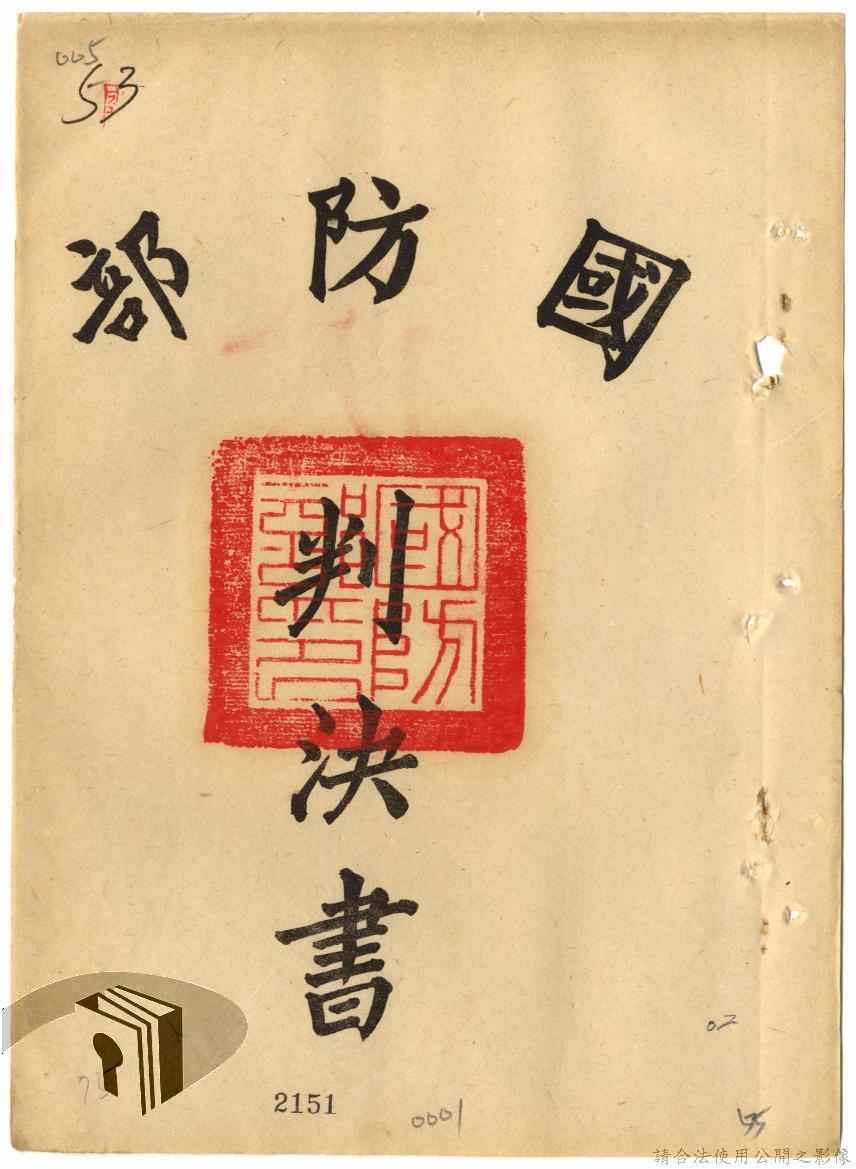 005
53
國防部
國防部印
判決書
02
2151
0001
請合法使用公開之影像